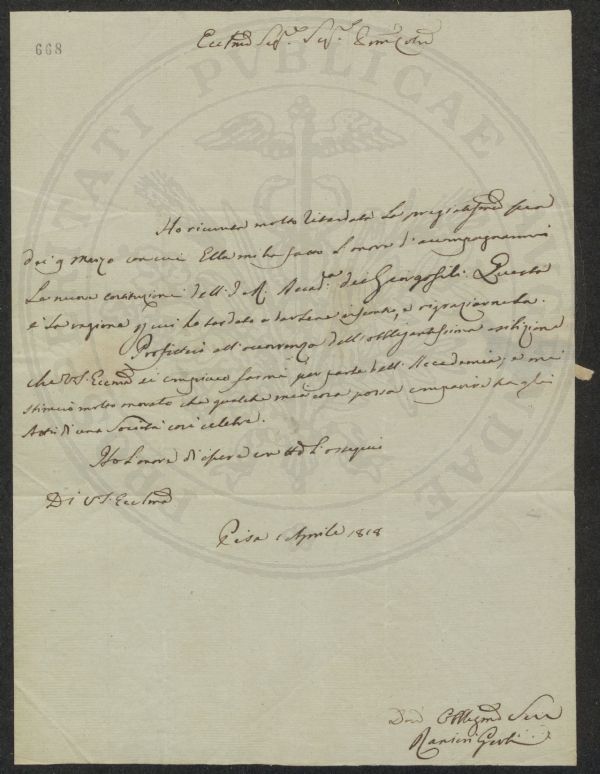 668
Ecclmo Sigr. Sigr. Pron Colmo
Ho ricevuta molto ritardata la pregiatissma sua
dei 9 Marzo con cui Ella mi ha fatto l'onore d'accompagnarmi
la nuova costituzione dell'I. R. Accada. dei Georgofili. Questa
è la ragione p cui ho tardato a darlene riscontro, e ringraziarnela.
Profitterò all'occorrenza dell'obbligantissima esibizione
che VS. Ecclma si compiace farmi per parte dell'Accademia; e mi
stimerò molto onorato che qualche mia cosa possa comparire tra gli
Atti di una Società così celebre.
Ho l'onore di essere con tto l'ossequio
Di VS. Ecclma
Pisa 1 Aprile 1818
Devo Obbligmo Serv
Ranieri Gerbi
PROSPERITATI PVBLICAE